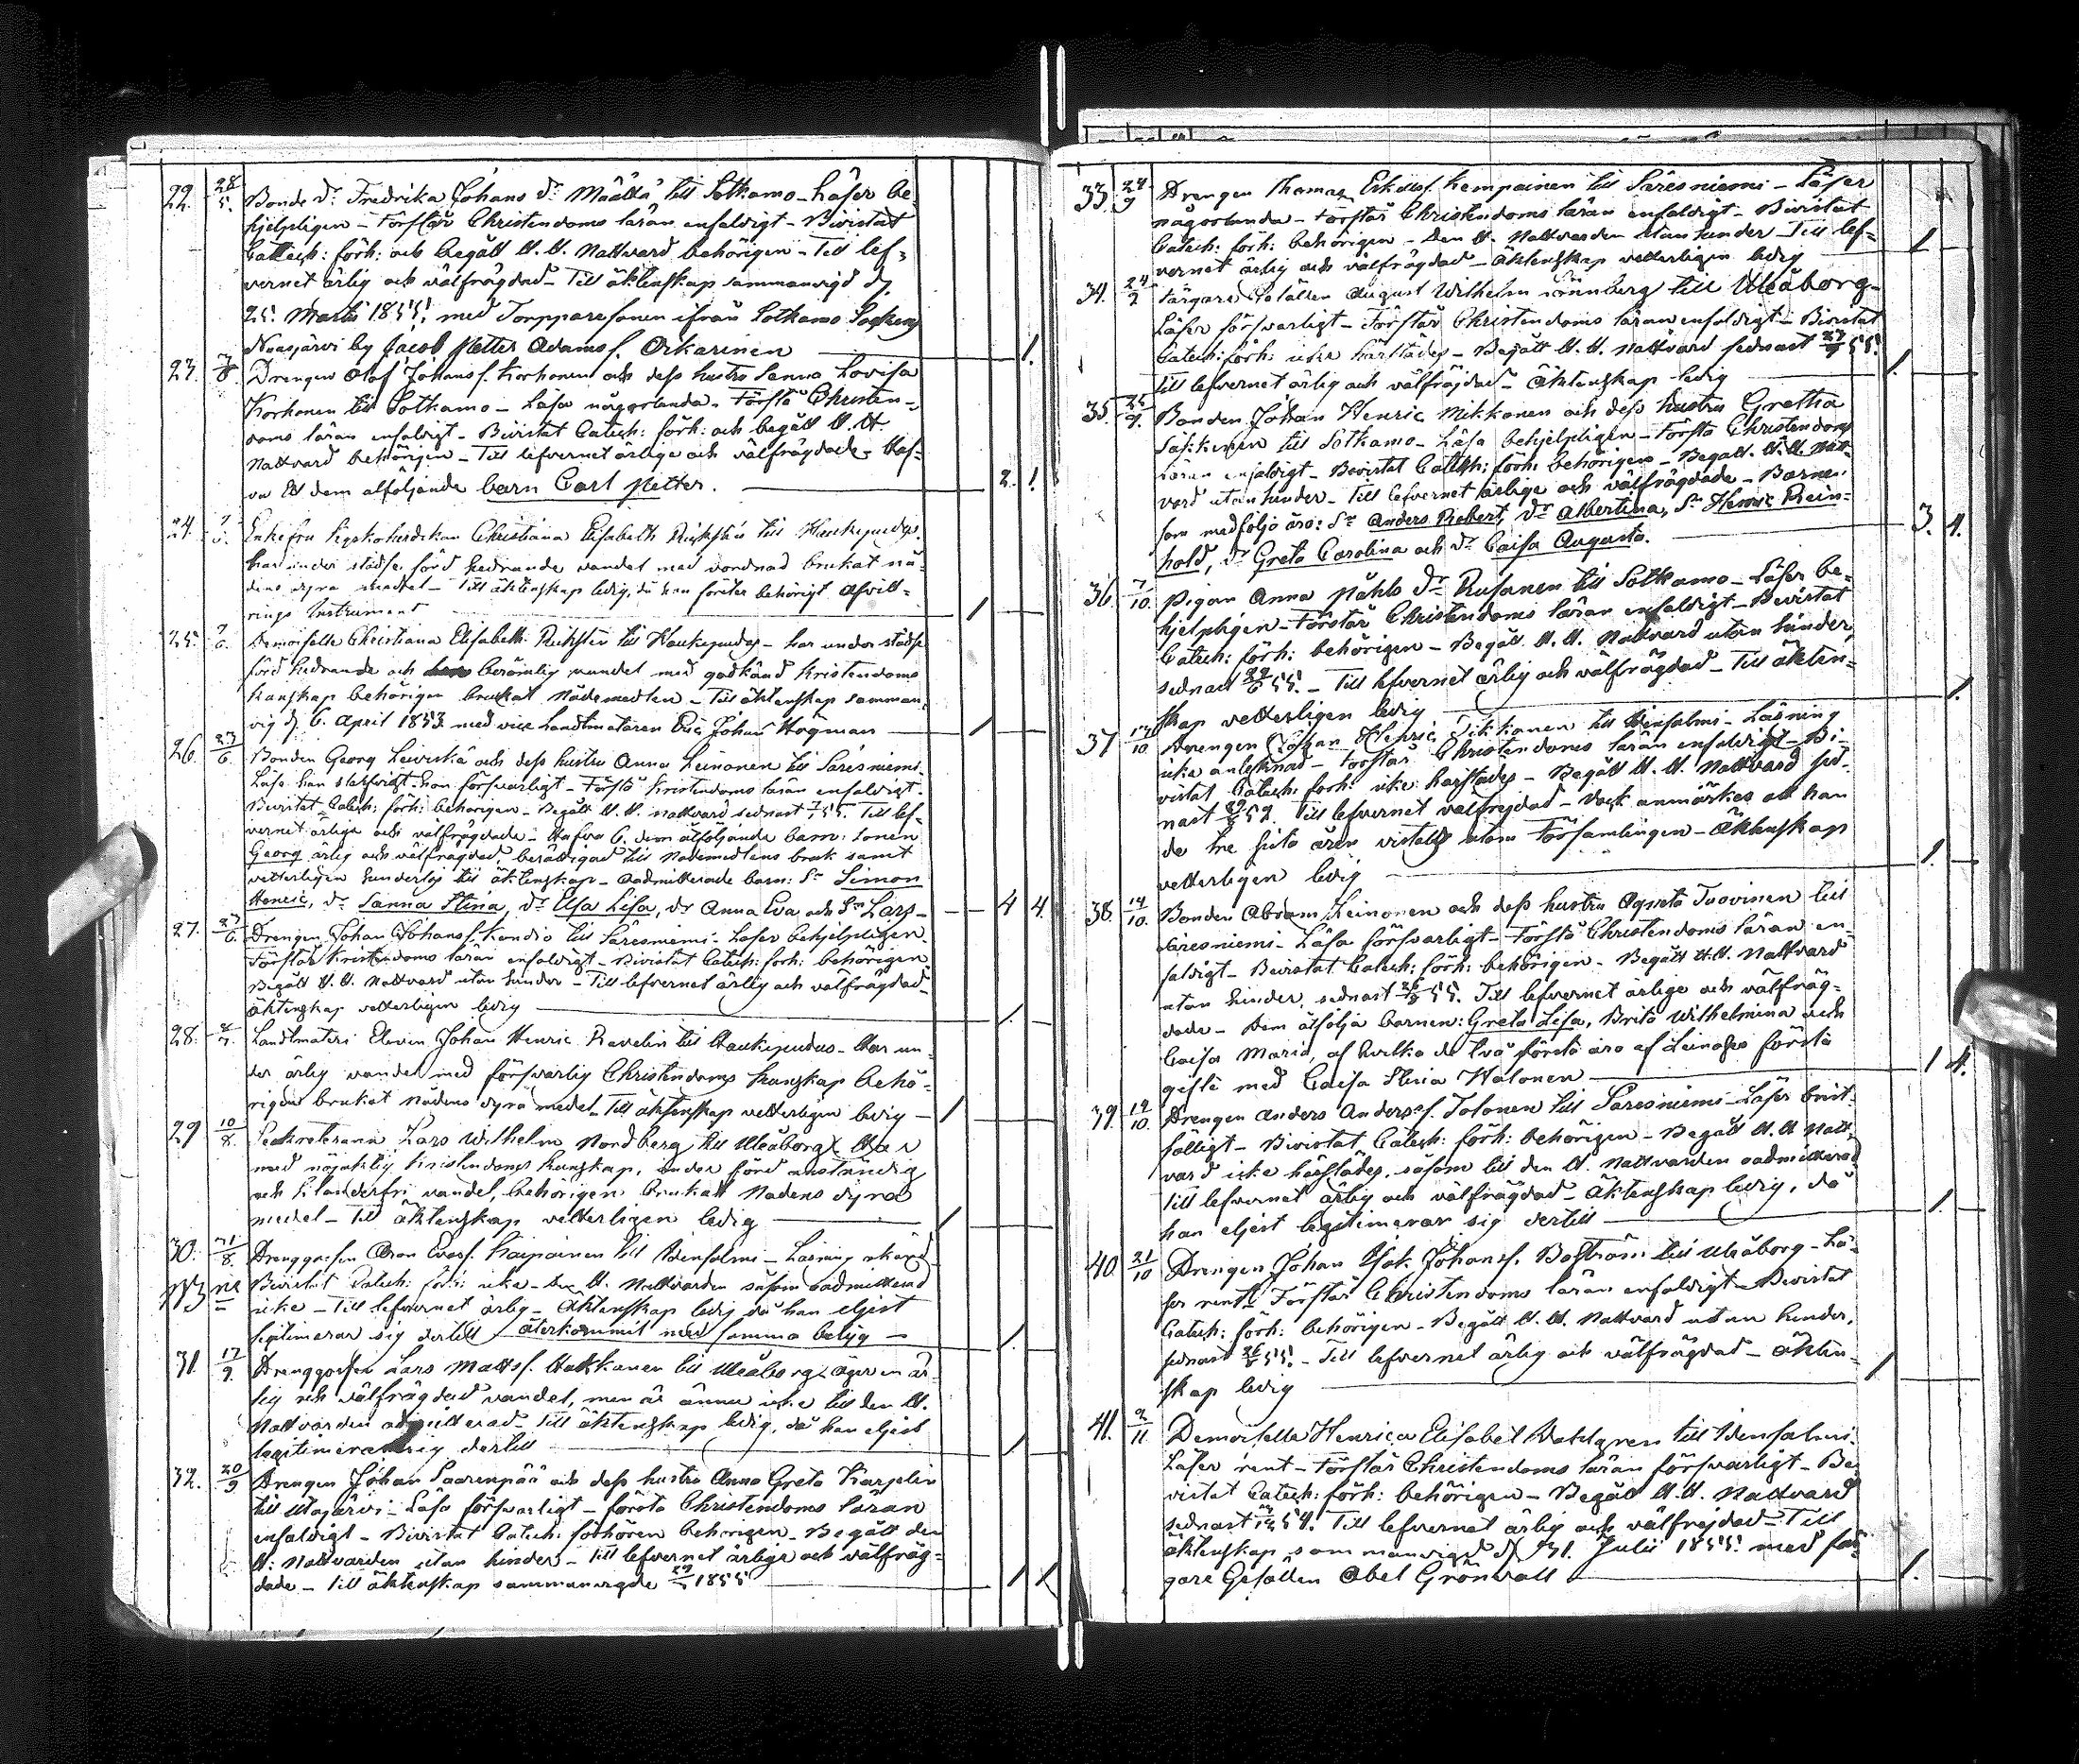 22. 28/5. Bonde dr Fredrika Johans dr Määttä till Sotkamo - Läser be-
hjelpligen - Förstår Christendoms läran enfaldigt - Bivistat
Catech: förh: och begått H. H. Nattvard behörigen - Till lef-
vernet ärlig och välfrägdad - Till äktenskap sammanvigd d.
25. Martii 1855. med Torpparesonen ifrån Sotkamo Sockens
Nuasjärvi by Jacob Petter Adamss. Okarinen 1.
23. 7/6. Drengen Olof Johanss. Korhonen och dess hustru Sanna Lovisa
Korhonen till Sotkamo - Läsa någorlunda - Förstå Christen-
doms läran enfaldigt - Bivistat Catech: förh: och begått H. H.
Nattvard behörigen - Till lefvernet ärlige och välfrägdade - Haf-
va ett dem åtföljande barn Carl Petter. 2. 1.
24. Enkefru Christiana Elisabeth till Haukipudas.
har under städse förd hedrande vandel med vördnad brukat nå-
dens dyra medel - Till äktenskap ledig, då hon företer behörigt afvitt-
rings Instrument 1
25. 6. Demoiselle Christiana Elisabeth till Haukipudas - har under städse
förd hedrande och berömlig vandel med godkänd Kristendoms
kunskap behörigen brukat Nådemedlen - Till äktenskap samman-
vig d. 6. April 1853 med vice Landtmätaren Eric Johan Högman 1
26. 23/6. Bonden Georg Leiviskä och dess hustru Anna Leinonen till Säresniemi.
Läsa han slätsvagt hon försvarligt - Förstå Kristendoms läran enfaldigt.
Bivistat Catech: förh: behörigen - Begått H. H. Nattvard sednast 55. Till lef-
vernet ärlige och välfrägdade - Hafva 6. dem åtföljande barn: sonen
Georg ärlig och välfrägdad, berättigad till Nådemedlens bruk samt
vetterligen hinderlös till äktenskap - Oadmitterade barn: Sn Simon
Henric, dr Sanna Stina, dr Elsa Lisa, dr Anna Eva och Sn Lars - 4 4.
27. 23/6. Drengen Johan Johanss. Kandio till Säresniemi - Läser behjelpligen.
Förstår Kristendoms läran enfaldigt - Bivistat Catech: förh: behörigen.
Begått H. H. Nattvard utan hinder - Till lefvernet ärlig och välfrägdad -
äktenskap vetterligen ledig 1.
28. 4/7. Landtmäteri Eleven Johan Henric Ravelin till Haukipudas - Har un-
der ärlig vandel med försvarlig Christendoms kunskap behö-
rigen brukat Nådens dyra medel - Till äktenskap vetterligen ledig - 1
29 10/8. Lars Wilhelm Nordberg till Uleåborg - Har
med nöjaktig Kristendoms kunskap, under förd anständig
och klanderfri vandel, behörigen brukat Nådens dyra
medel - Till äktenskap vetterligen ledig 1
30. 31/8. Drenggossen Aron Evass. Kaipainen till Idensalmi - Läsning okänd
Bivistat Catech: förh: icke - H. Nattvarden såsom oadmitterad
icke - Till lefvernet ärlig - Äktenskap ledig då han eljest
legitimerar sig dertill återkommit med samma betyg - 1.
31. 17/9. Drenggossen Lars Mattss. Hakkanen till Uleåborg - äger en är-
lig och välfrägdad vandel, men är ännu icke till den H.
Nattvarden admitterad - Till äktenskap ledig, då han eljest
legitimerar sig dertill 1
32. 20/9 Drengen Johan Saarenpää och dess hustru Anna Greta Karjelin
till Utajärvi - Läsa försvarligt - förstå Christendoms läran
enfaldigt - Bivistat Catech: förhören behörigen - Begått den
H: Nattvarden utan hinder - Till lefvernet ärlige och välfräg-
dade - Till äktenskap sammanvigde 1855 1 1
33. 24/9 Drengen Thomas Erkkess. Kempainen till Säresniemi - Läser
någorlunda - Förstår Christendoms läran enfaldigt - Bivistat
Catech: förh: behörigen - Den H. Nattvarden utan hinder - Till lef-
vernet ärlig och välfrägdad - äktenskap vetterligen ledig 1
34. Färgare Gesällen August Wilhelm Lönnberg till Uleåborg -
Läser försvarligt - Förstår Christendoms läran enfaldigt - Bivistat
Catech: förh: icke härstädes - Begått H. H. Nattvard sednast 55.
Till lefvernet ärlig och välfräjdad - Äktenskap ledig 1.
35. 25/9. Bonden Johan Henric Mikkonen och dess hustru Gretha
till Sotkamo - Läsa behjelpligen - Förstå Christendoms
läran enfaldigt - Bivistat Catech: förh: behörigen - Begått H. H. Natt-
vard utan hinder - Till lefvernet ärlige och välfrägdade - Barnen
som medfölja äro: Sn Anders Robert, dr Albertina, Sn Henric Rein-
hold, dr Greta Carolina och dr Caisa Augusta. 3. 4.
36. 7/10. Pigan Anna Påhls dr Rusanen till Sotkamo - Läser be-
hjelpligen - Förstår Christendoms läran enfaldigt - Bivistat
Catech: förh: behörigen - Begått H. H. Nattvard utan hinder,
sednast 55. - Till lefvernet ärlig och välfrägdad - Till äkten-
skap vetterligen ledig 1.
37 Drengen Johan Henric Tikkanen till Idensalmi - Läsning
icke antecknad - Förstår Christendoms läran enfaldigt - Bi-
vistat Catech: förh: icke härstädes - Begått H. H. Nattvard sed-
nast 52. Till lefvernet välfrejdad - Dock anmärkes att han
de tre sista åren vistats utom Församlingen - Äktenskap
vetterligen ledig 1.
38. 14/10. Bonden Abram Leinonen och dess hustru Agneta Tuovinen till
Säresniemi - Läsa försvarligt - Förstå Christendoms läran en-
faldigt - Bivistat Catech: förh: behörigen - Begått H.H. Nattvard
utan hinder, sednast 55. Till lefvernet ärlige och välfräg-
dade - Dem åtfölja barnen: Greta Lisa, Brita Wilhelmina och
Caisa Maria, af hvilka de två första äro af Leinonens första
gifte med Caisa Stina Halonen 1 4.
39. 14/10. Drengen Anders Anderss. Tolonen till Säresniemi - Läser brist-
fälligt - Bivistat Catech: förh: behörigen - Begått H. H. Natt-
vard icke härstädes, såsom till den H. Nattvarden oadmitterad
Till lefvernet ärlig och välfrägdad - Äktenskap ledig, då
han eljest legitimerar sig dertill 1
40. 21/10 Drengen Johan Isak Johanss. Boström till Uleåborg - Lä-
ser rent - Förstår Christendoms läran enfaldigt - Bivistat
Catech: förh: behörigen - Begått H. H. Nattvard utan hinder,
sednast 55. - Till lefvernet ärlig och välfrägdad - Äkten-
skap ledig 1
41. 2/11 Demoiselle Henrica Elisabet Wahlgren till Idensalmi.
Läser rent - Förstår Christendoms läran försvarligt - Bi-
vistat Catech: förh: behörigen - Begått H.H. Nattvard
sednast 54. Till lefvernet ärlig och välfrejdad - Till
äktenskap sammanvigd d. 31. Julii 1855. med fär-
gare Gesällen Abel Grönvall 1.